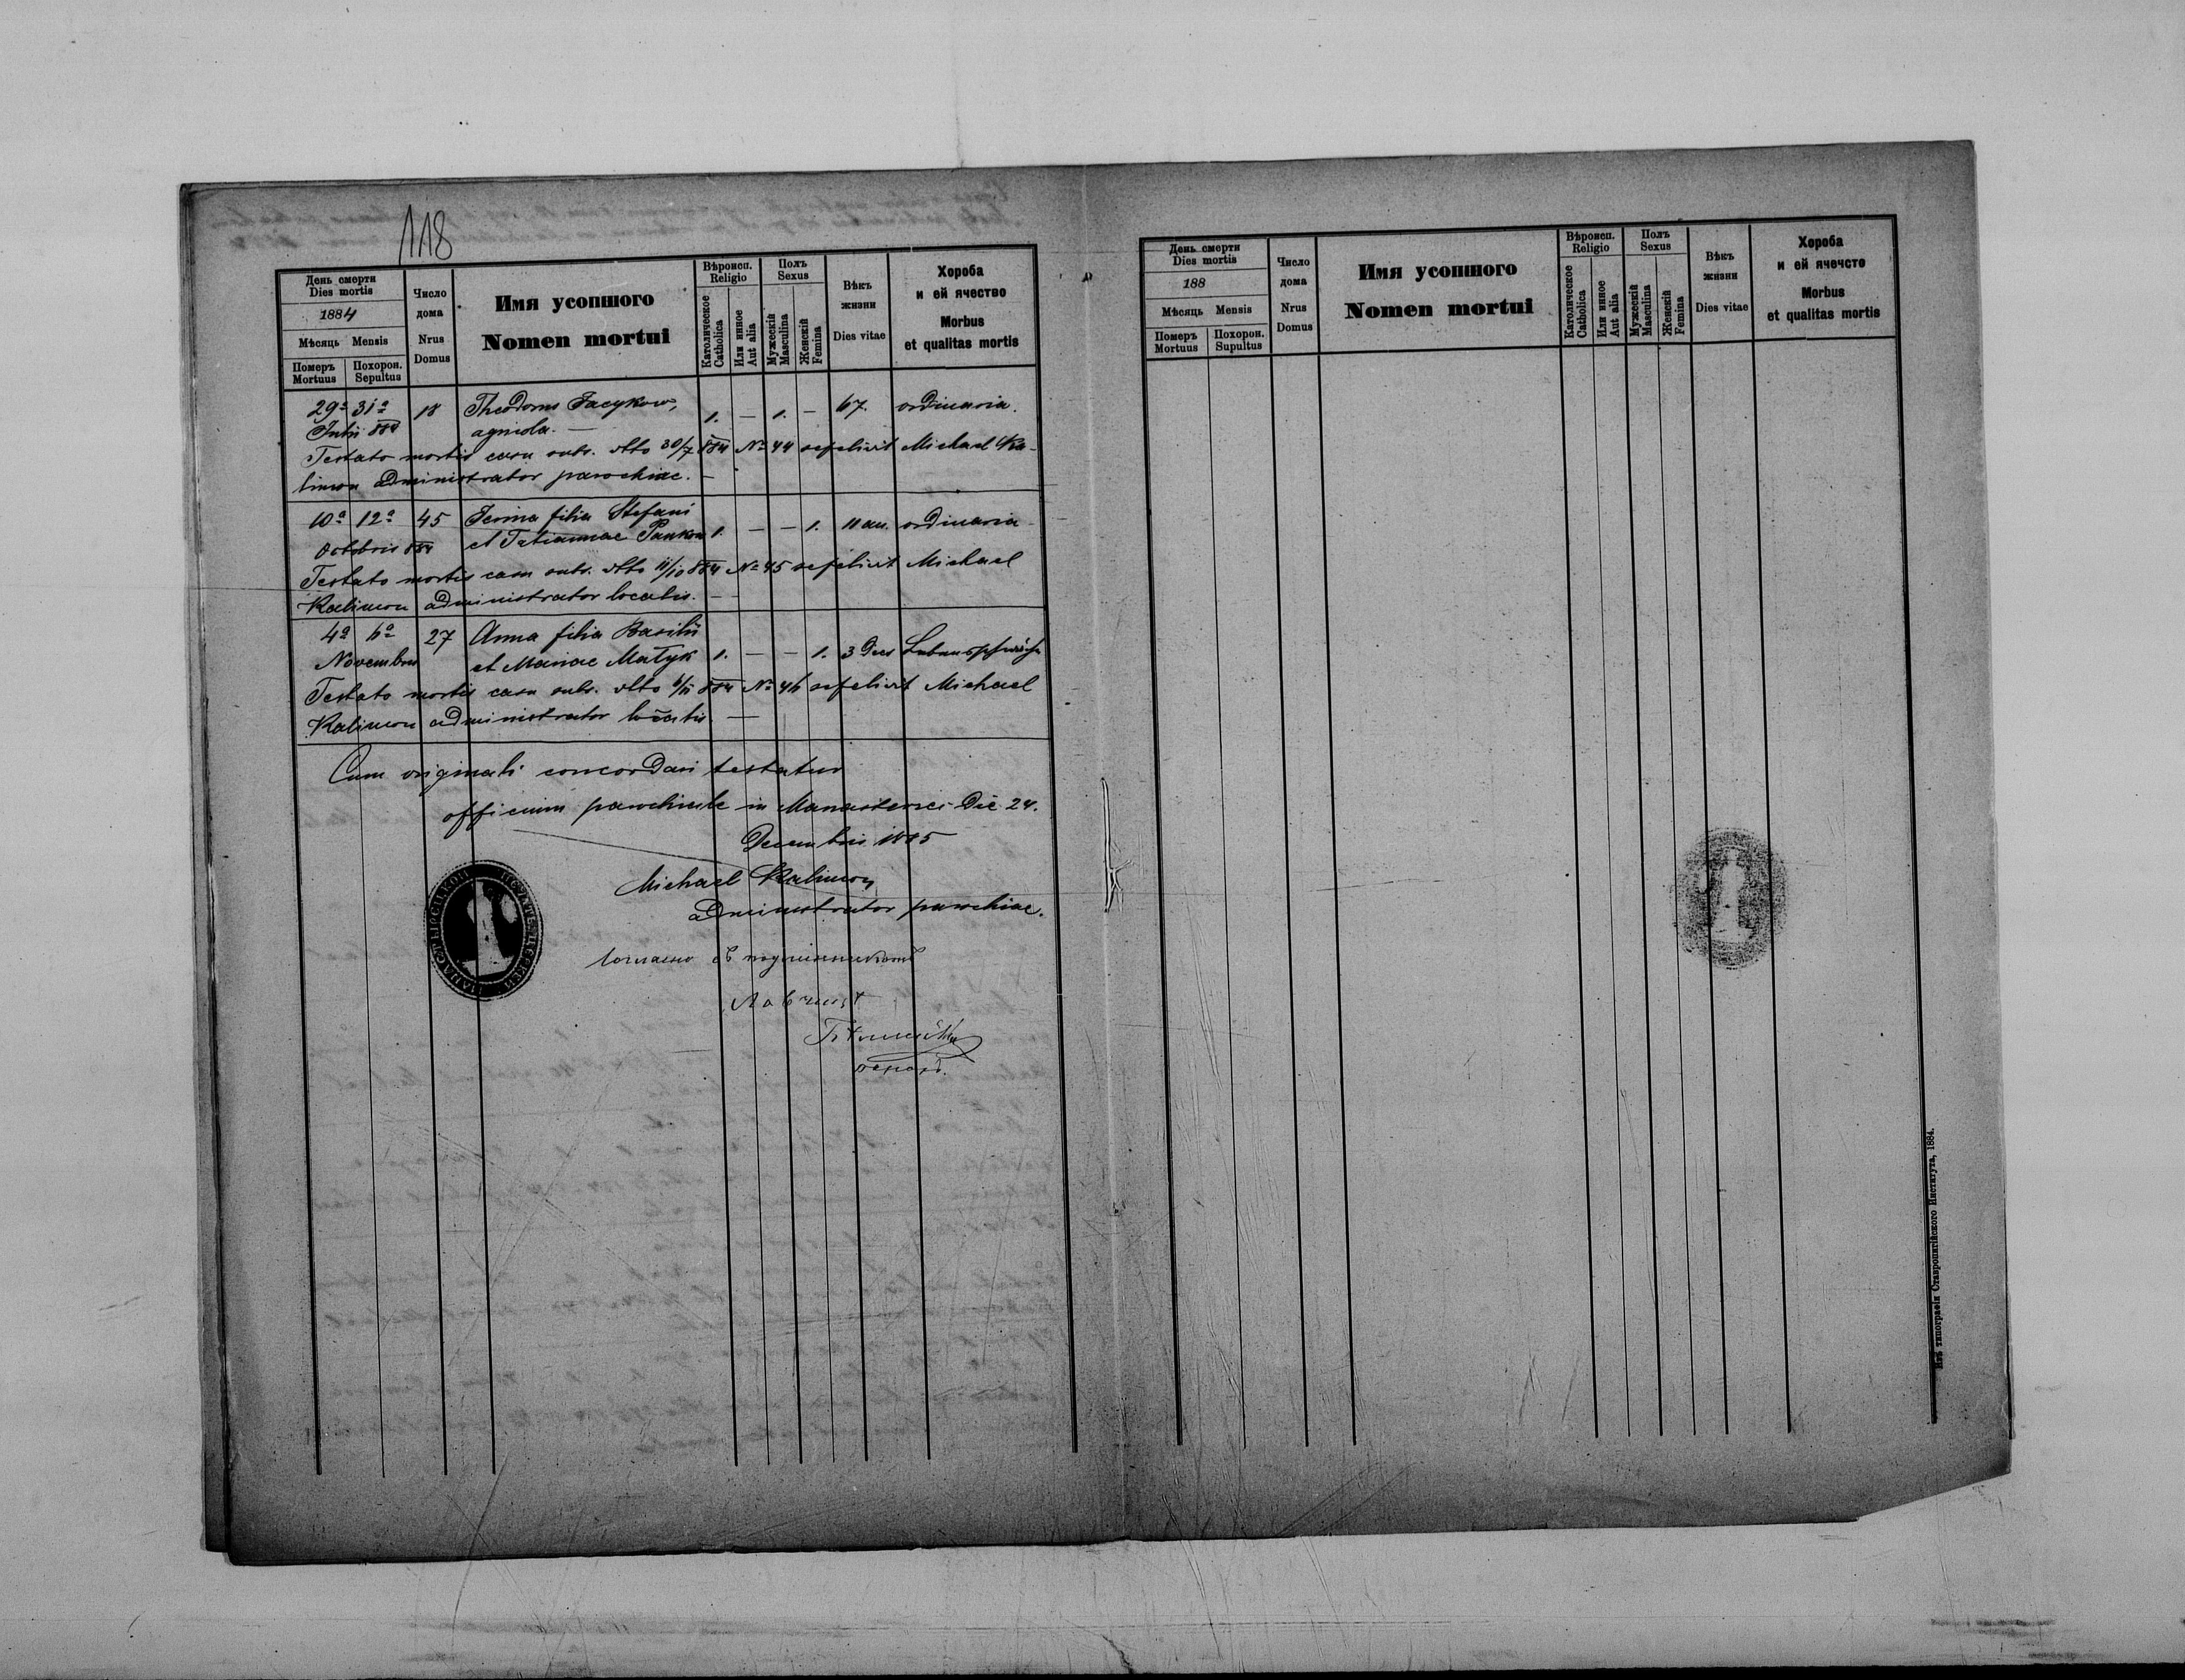 118
День смерти
Dies mortis
1884
Мѣсяць Mensis
Померъ Похорон.
Mortuus Sepultus
Число
дома
Nrus
Domus
Имя усопшого
Nomen mortui
Вѣроисп.
Religio
Католическое
Catholica
Или инное
Aut alia
Полъ
Sexus
Мужескій
Masculina
Женскій
Femina
Вѣкъ
жизни
Dies vitae
Хороба
и ей ячество
Morbus
et qualitas mortis
29a 31a 18 Theodorus Jacykow, 1. — 1. — 67. ordinaria.
Julii 884 agricola. —
Testato mortis casu subs. dtto 30/7 884 No 44 sepelivit Michael Ka-
limon administrator parochiae. —
10a 12a 45 filia Stefani
Octobris 884 et Tatiannae Pankow 1. — — 1. 11 an. ordinaria
Testato mortis casu subs. dtto 11/10 884 No 45 sepelivit Michael
Kalimon administrator localis. —
4a 6a 27 Anna filia Basilii
Novembris et Mariae Matyk 1. — — 1. 3 Dies Lebensschwäche
Testato mortis casu subs. dtto 6/11 884 No 46 sepelivit Michael
Kalimon administrator localis. —
Cum originali concordari testatur
officium parochiale in Manasterzec Die 24.
Decembris 1885
Michael Kalimon
administrator parochiae.
Согласно съ подлинникомъ
День смерти
Dies mortis
188
Мѣсяць Mensis
Померъ Похорон.
Mortuus Supultus
Число
дома
Nrus
Domus
Имя усопшого
Nomen mortui
Вѣроисп.
Religio
Католическое
Catholica
Или инное
Aut alia
Полъ
Sexus
Мужескій
Masculina
Женскій
Femina
Вѣкъ
жизни
Dies vitae
Хороба
и ей ячечсто
Morbus
et qualitas mortis
Изъ типографіи Ставропигійского Института, 1884.